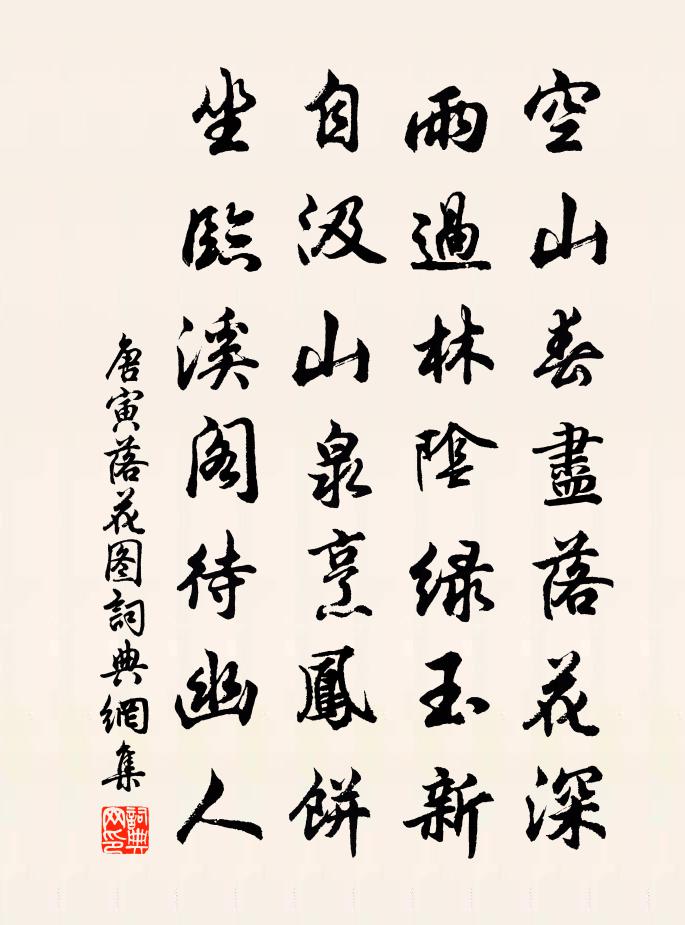 空山春盡落花深
雨過林陰綠玉新
自汲山泉烹鳳餅
坐臨溪閣待幽人
唐寅落花图詞典網集
詞典网印